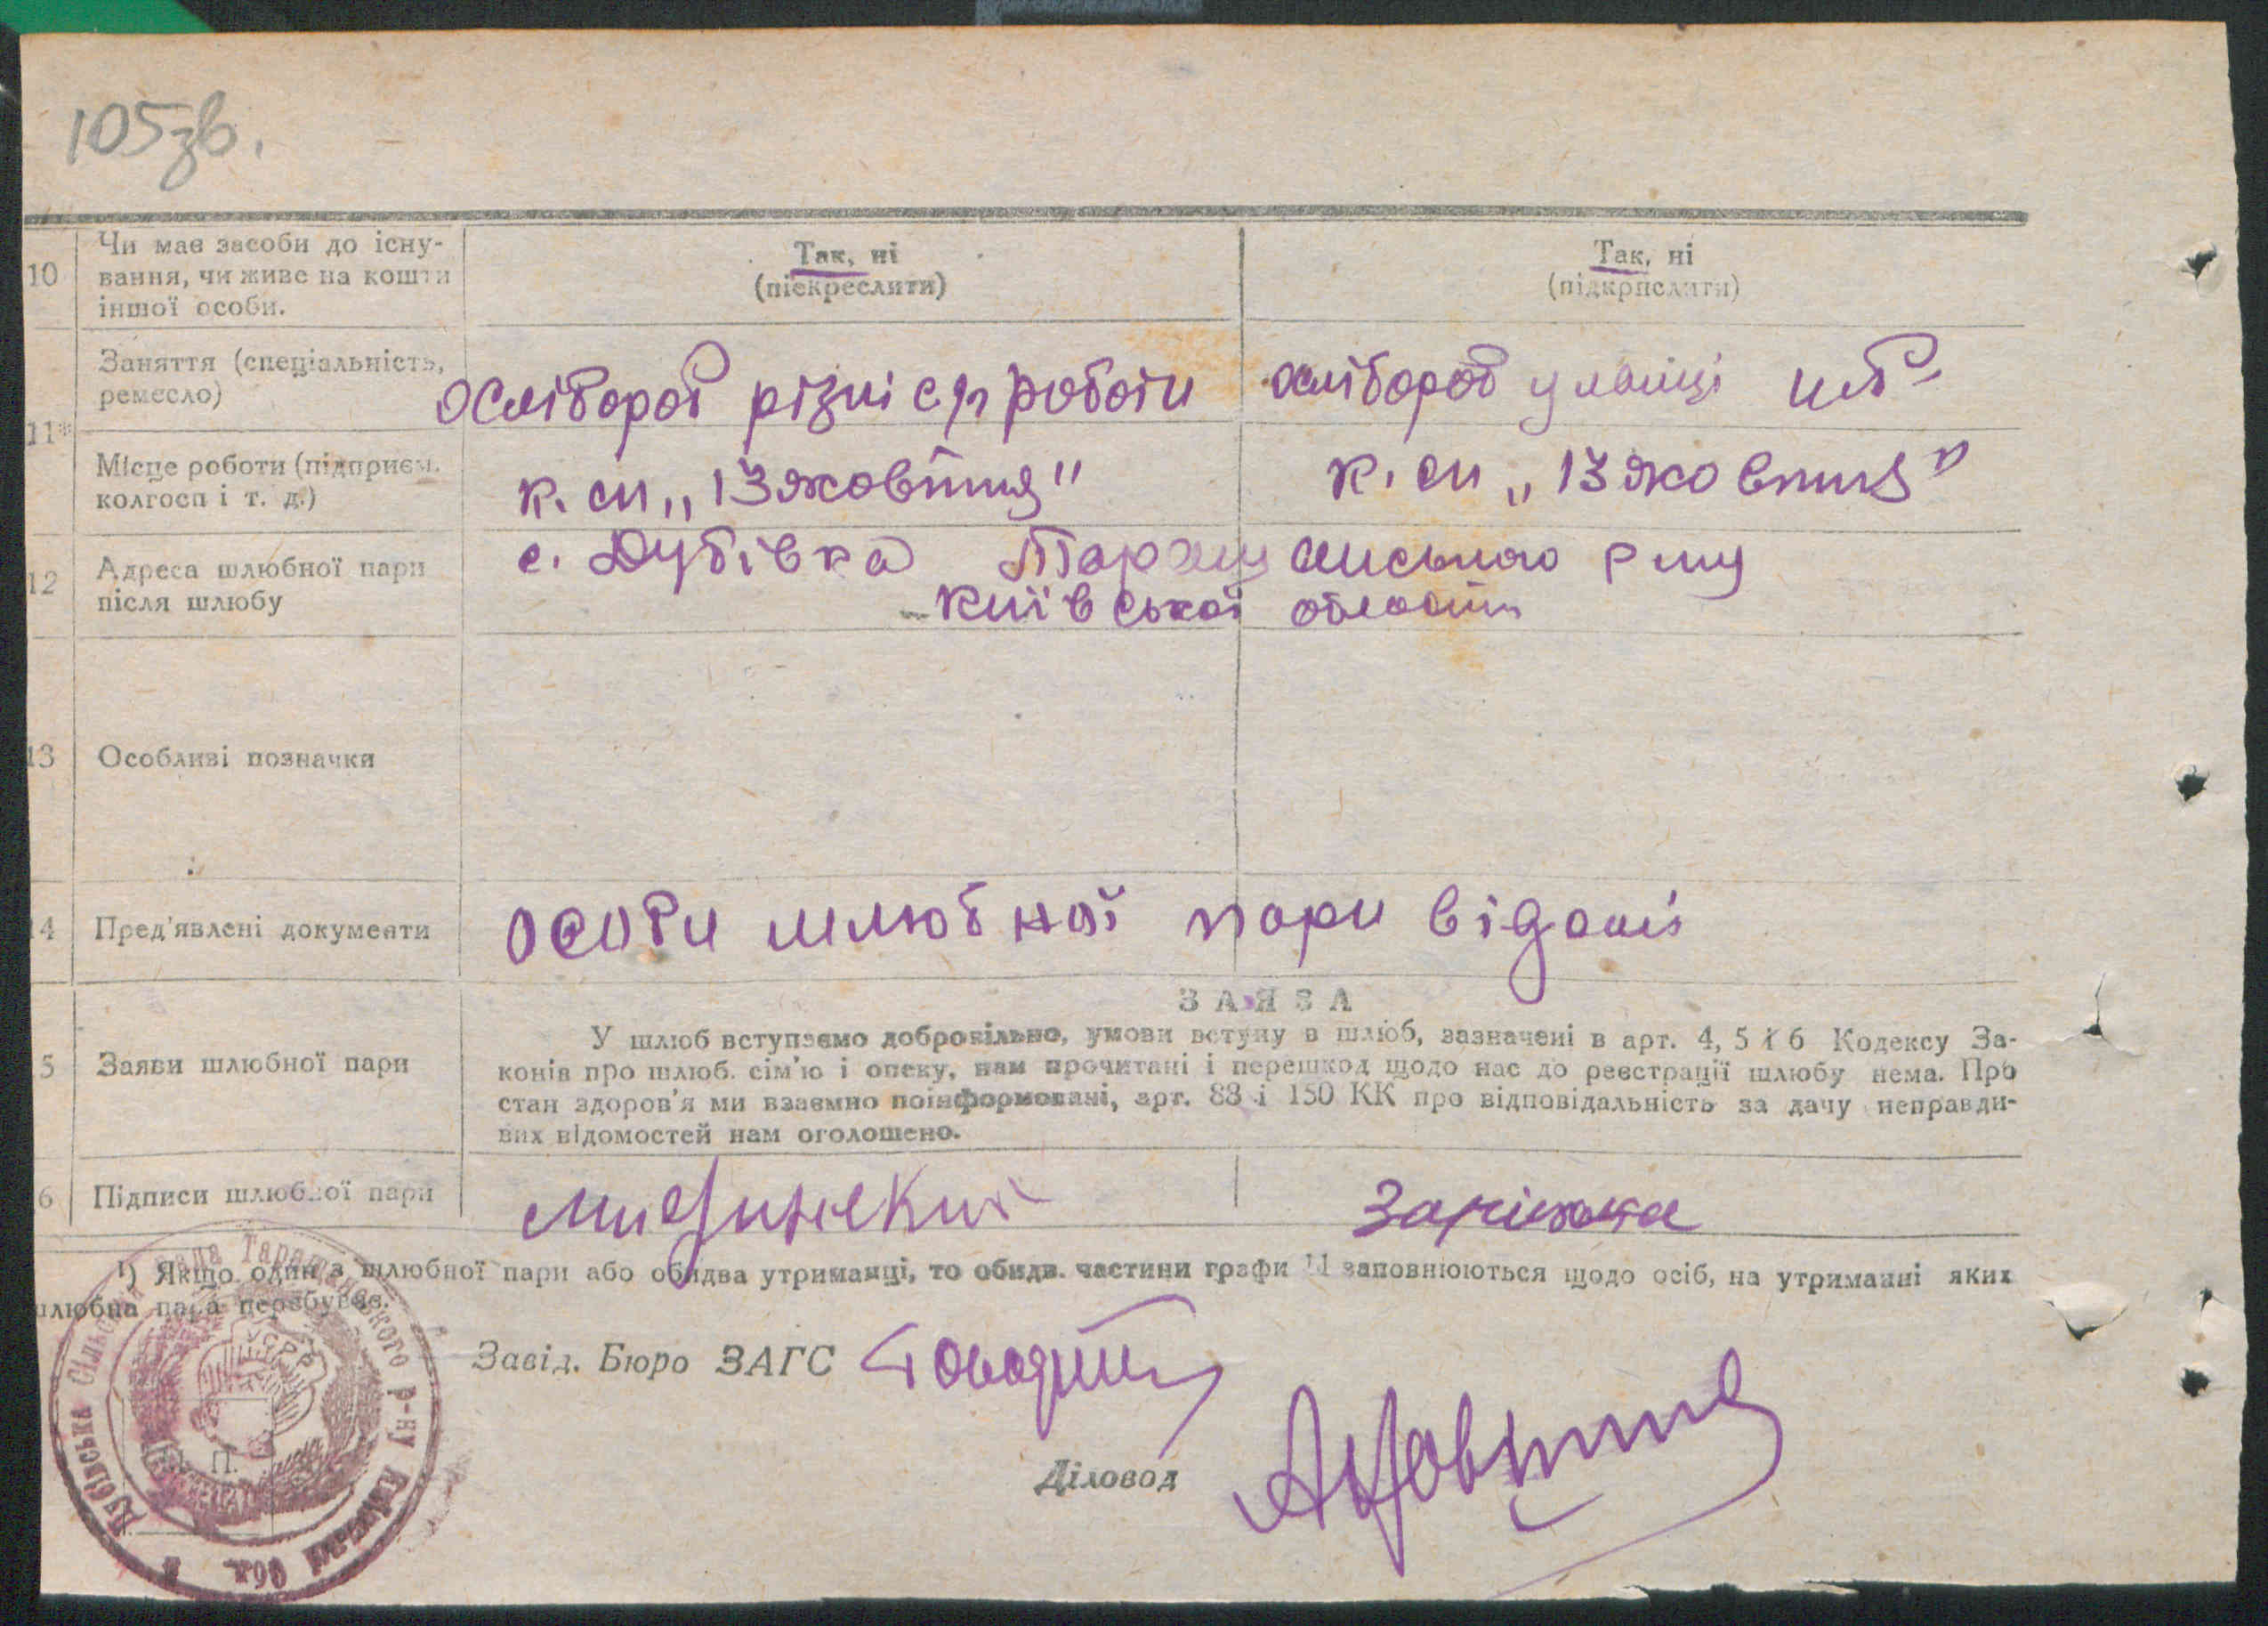 105зв.
10
Чи має засоби до існу-
вання, чи живе на кошти
іншої особи.
Так, ні
(піскреслити)
Так, ні
(підкрпслити)
11*
Заняття (спеціальність,
ремесло)
хлібороб різні с/г роботи
хлібороб
Місце роботи (підприєм.
колгосп і т. д.)
к. см „13 жовтня"
к. см „13 жовтня"
12
Адреса шлюбної пари
після шлюбу
с. Дубівка Таращанського р-ну
Київської області
13
Особливі позначки
14
Пред'явлені документи
особи шлюбної пари відомі
ЗАЯВА
5
Заяви шлюбної пари
У шлюб вступаємо добровільно, умови вступу в шлюб, зазначені в арт. 4, 5 і 6 Кодексу За-
конів про шлюб. сім'ю і опеку, нам прочитані і перешкод щодо нас до реєстрації шлюбу нема. Про
стан здоров'я ми взаємно поінформовані, арт. 88 і 150 КК про відповідальність за дачу неправди-
вих відомостей нам оголошено.
6
Підписи шлюбної пари
¹) Якщо один з шлюбної пари або обидва утриманці, то обидв. частини графи 11 заповнюються щодо осіб, на утриманні яких
шлюбна пара перебуває.
Завід. Бюро ЗАГС
Діловод
М. П.
Дубівська Сільська Рада Таращанського р-ну Київської Обл.
УСРР